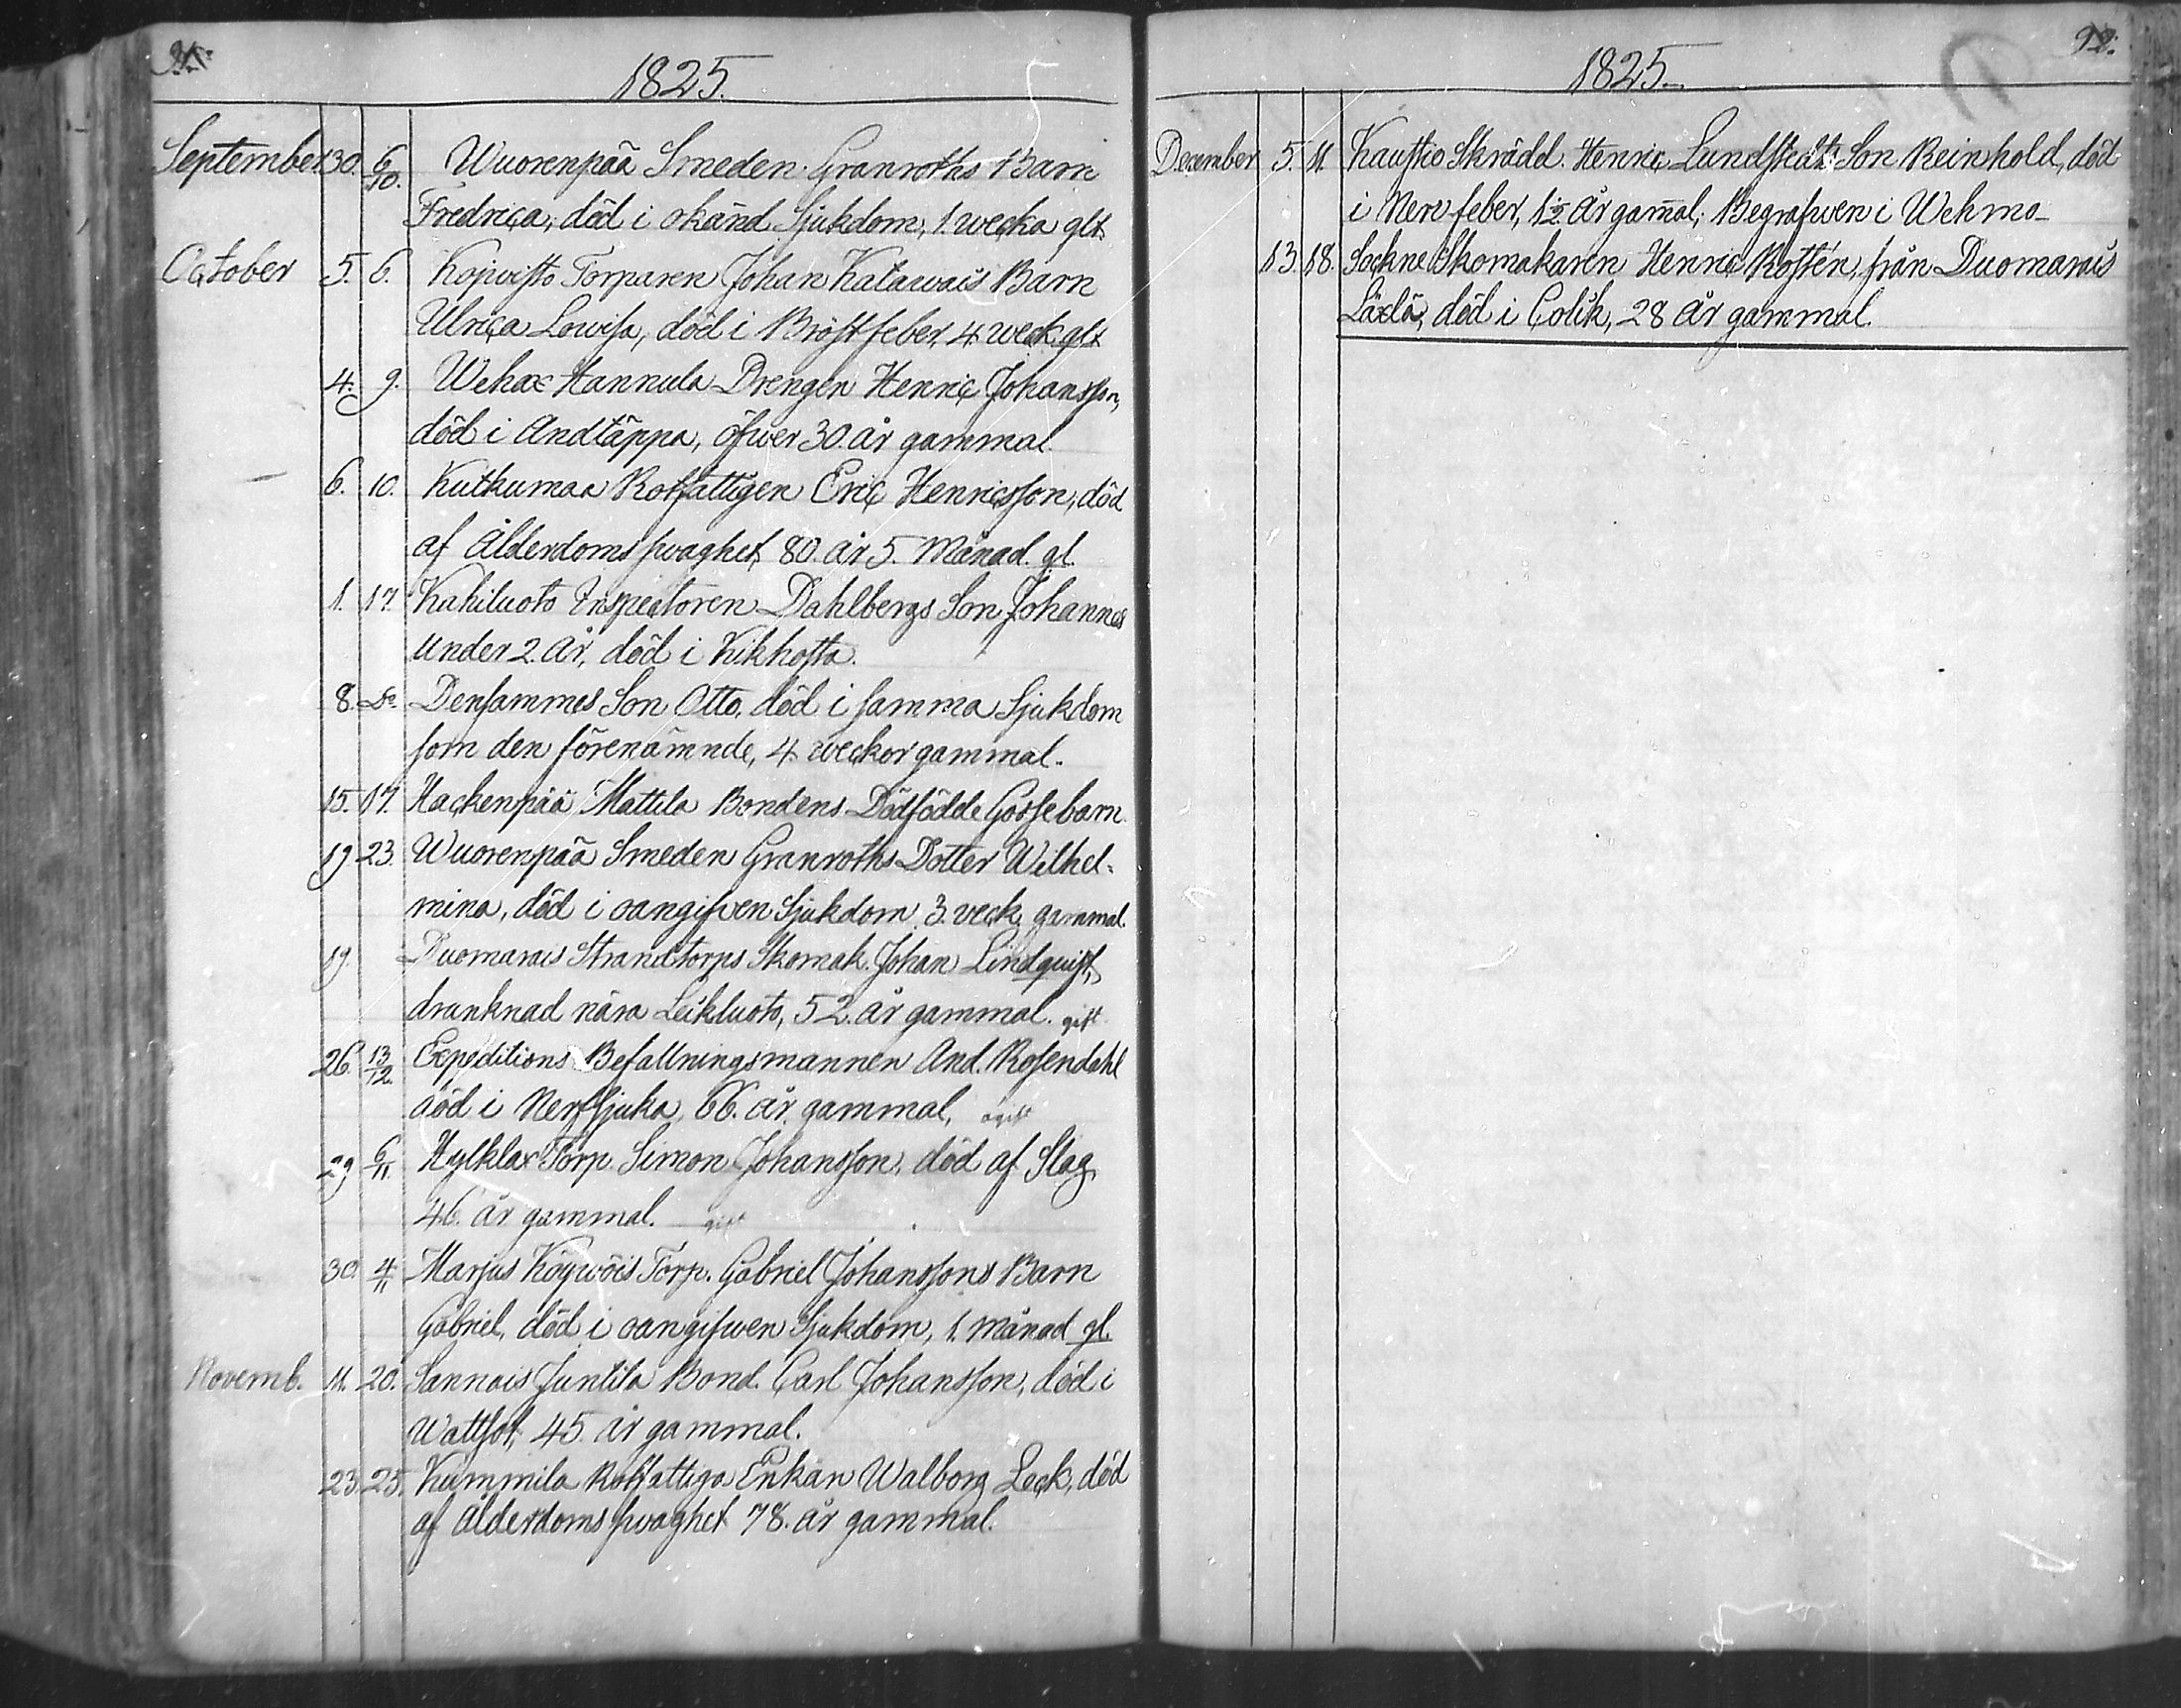 91.
1825.
September 30. 6/10. Wuorenpää Smeden Granroths Barn
Fredrica, död i okänd Sjukdom, 1. wecka glt.
October 5. 6. Kojvisto Torparen Johan Katawais Barn
Ulrica Lowisa, död i Bröstfeber, 4 weck. glt
4. 9. Wehax Hannula Drengen Henric Johansson,
död i Andtäppa, öfwer 30. år gammal.
6. 10. Kutkumaa Rotfattigen Eric Henricsson, död
af Ålderdoms swaghet, 80. år 5. Månad. gl.
1. 17. Kahiluoto Inspectoren Dahlbergs Son Johannes
under 2. år, död i Kikhosta.
8. Do Densammes Son Otto, död i samma Sjukdom
som den förenämnde, 4 weckor gammal.
15. 17. Hackenpää Mattila Bondens Dödfödde Gossebarn.
19 23. Wuorenpää Smeden Granroths Dotter Wilhel-
mina, död i oangifwen Sjukdom 3. veck. gammal.
19. Duomarais Strandtorps Skomak. Johan Lindquist,
drunknad nära Leikluoto, 52. år gammal. gift
26. 13/12. Expeditions Befallningsmannen And. Rosendahl
död i Nerfsjuka, 66. år gammal, ogift
29 6/11. Hylklax Torp. Simon Johansson, död af Slag,
46. år gammal. gift
30. 4/11 Marjus Köywöis Torp. Gabriel Johanssons Barn
Gabriel, död i oangifwen Sjukdom, 1. månad gl.
Novemb. 11. 20. Sannais Juntila Bond. Carl Johansson, död i
Wattsot, 45. år gammal.
23. 25. Kummila Rotfattiga Enkan Walborg Leck, död
af Ålderdoms swaghet 78. år gammal.
92.
1825.
December 5. 11. Kaustio Skrädd. Henric Lundstedts Son Reinhold, död
i Nervfeber, 1½ År gamal; Begrafwen i Wehmo
13. 18. Sockne Skomakaren Henric Rostén, från Duomarais
Laxla, död i Colik, 28 år gammal.